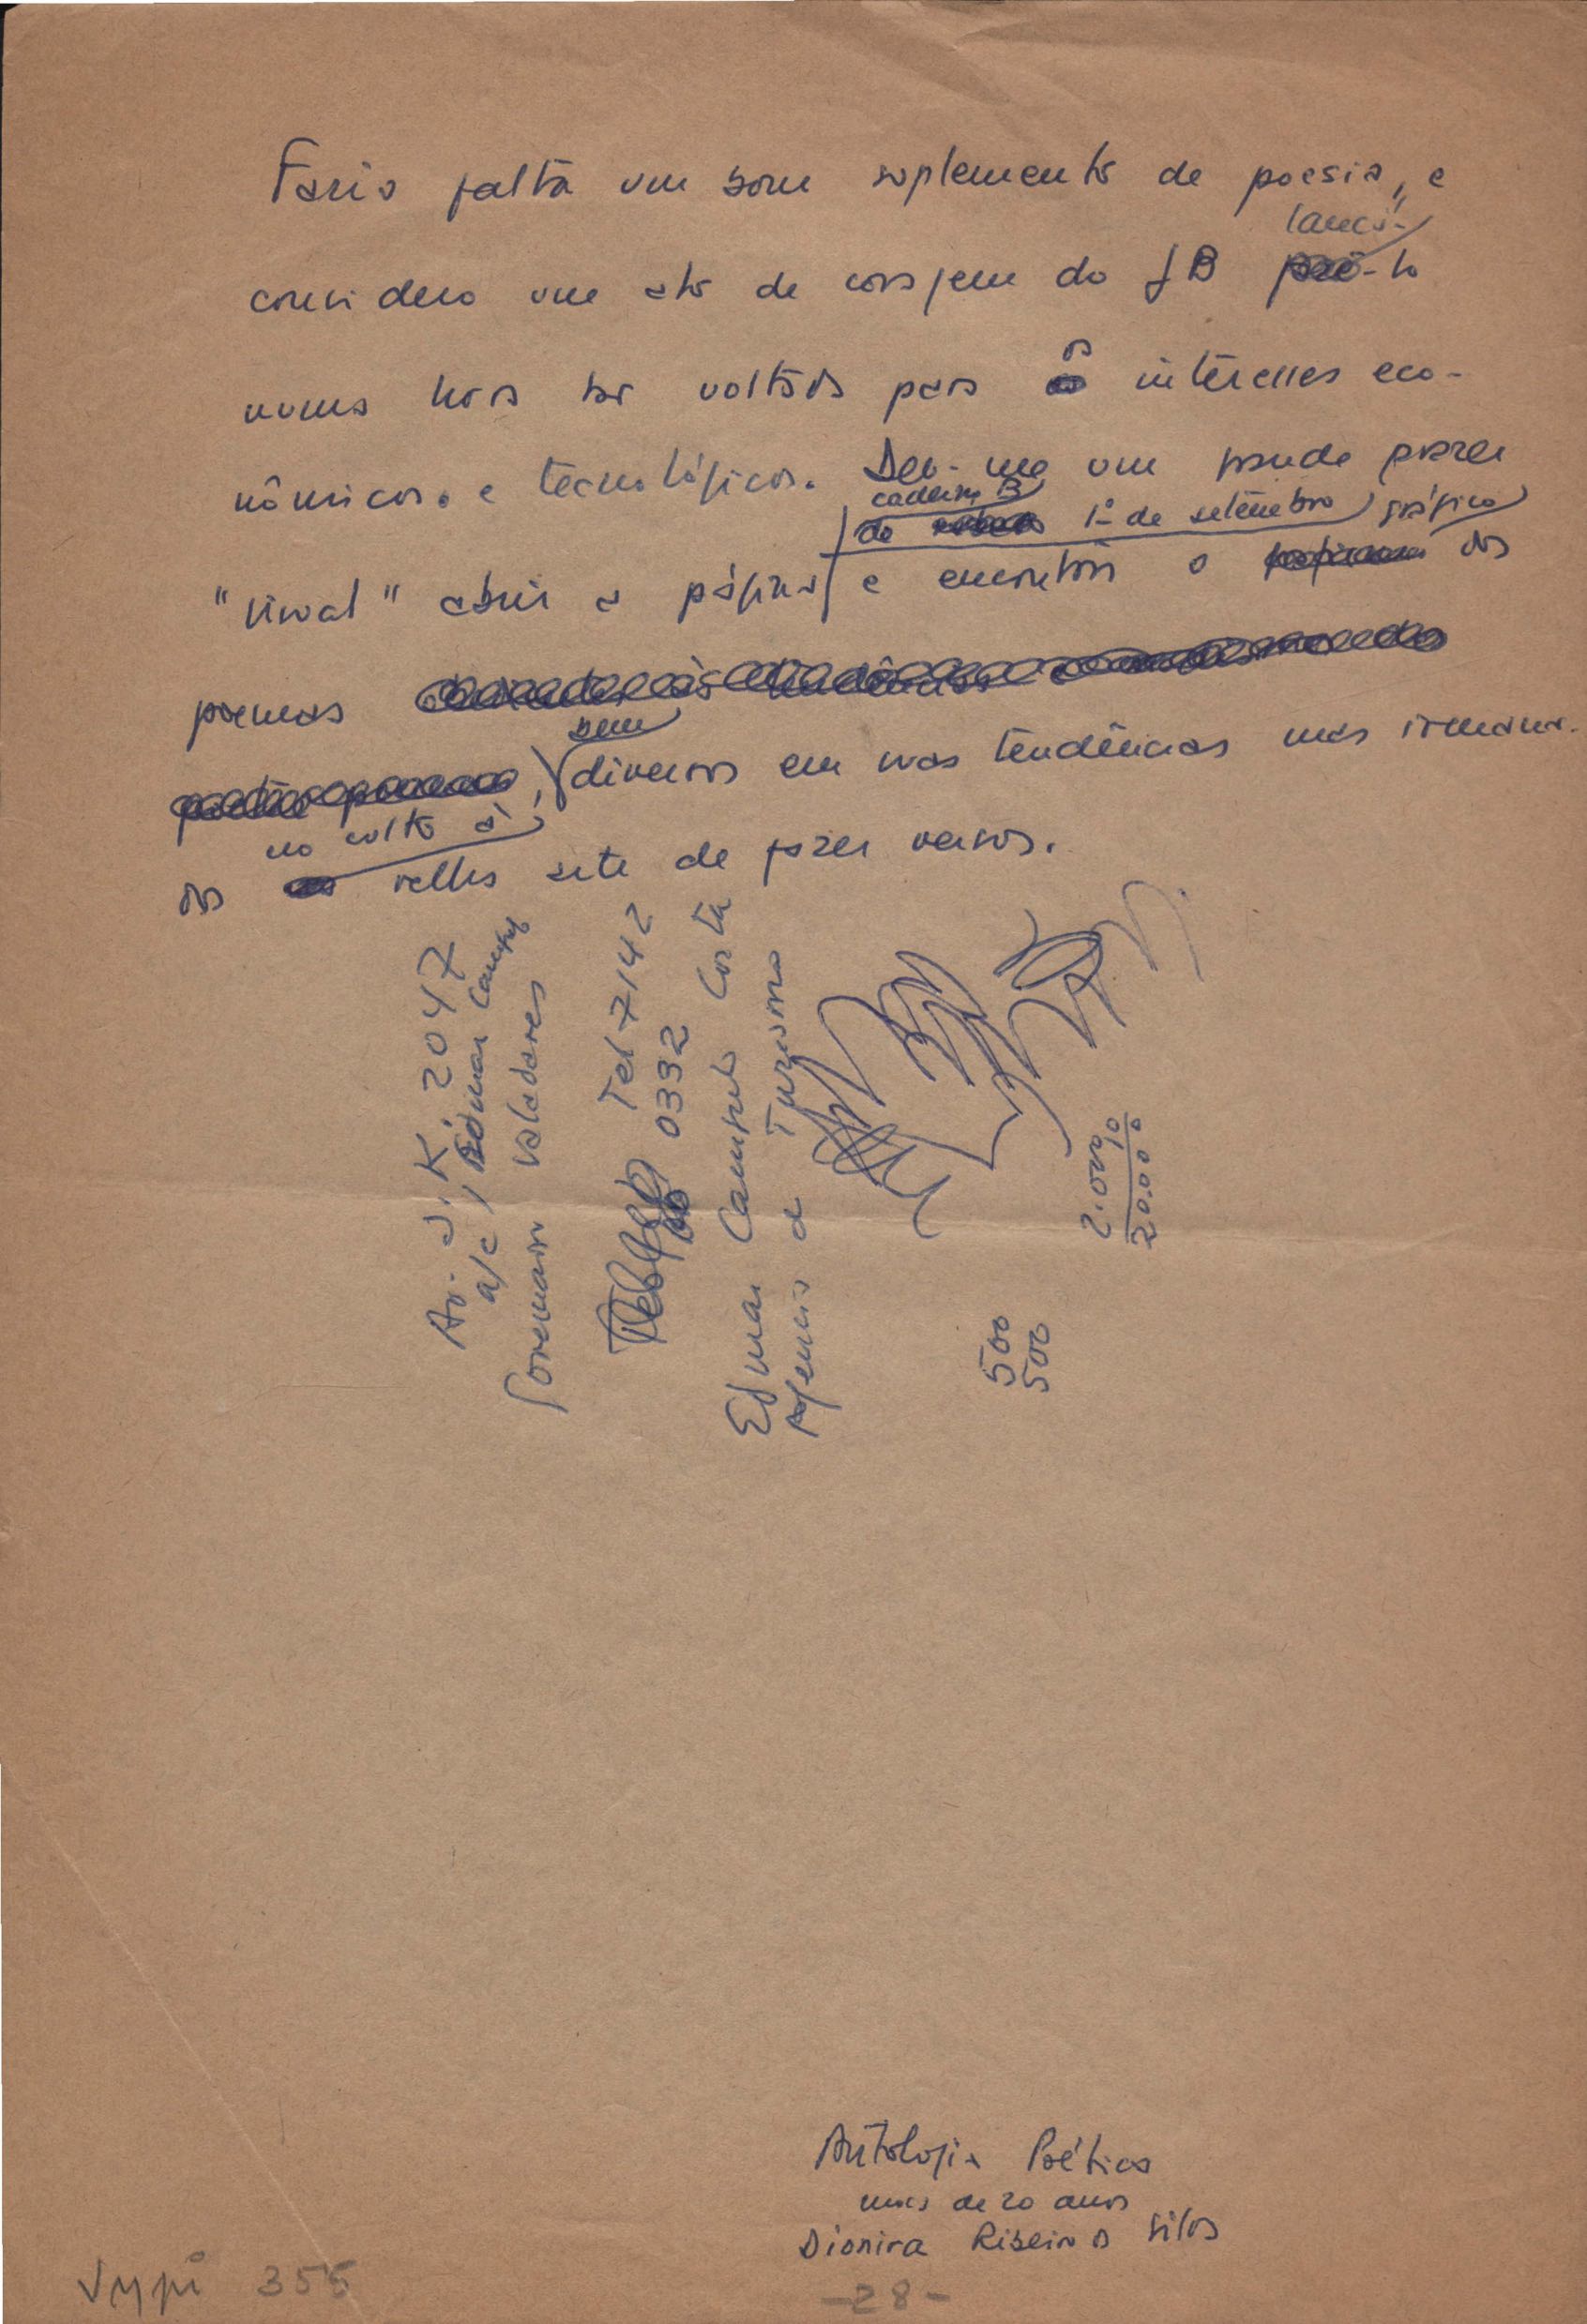 Fazia falta um bom suplemento de poesia, e
lançá-
considero um ato de coragem do JB -lo
numa hora tão voltada para os interesses eco-
nômicos e tecnológicos. Deu-me um grande prazer
caderno B
do 1º de setembro gráfico
"visual" abrir a página e encontrar o dos
poemas
bem
diversos em suas tendências mas irmana-
no culto à
dos velha arte de fazer versos.
Av. J. K. 2047
a/c Edmar Campelo
Governador Valadares
Tel 7142
0332
Edmar Campelo Costa
Agencia d Turismo
2.000
10
20.000
500
500
Antologia Poética
mais de 20 anos
Dionira Ribeiro Silos
355
-28-